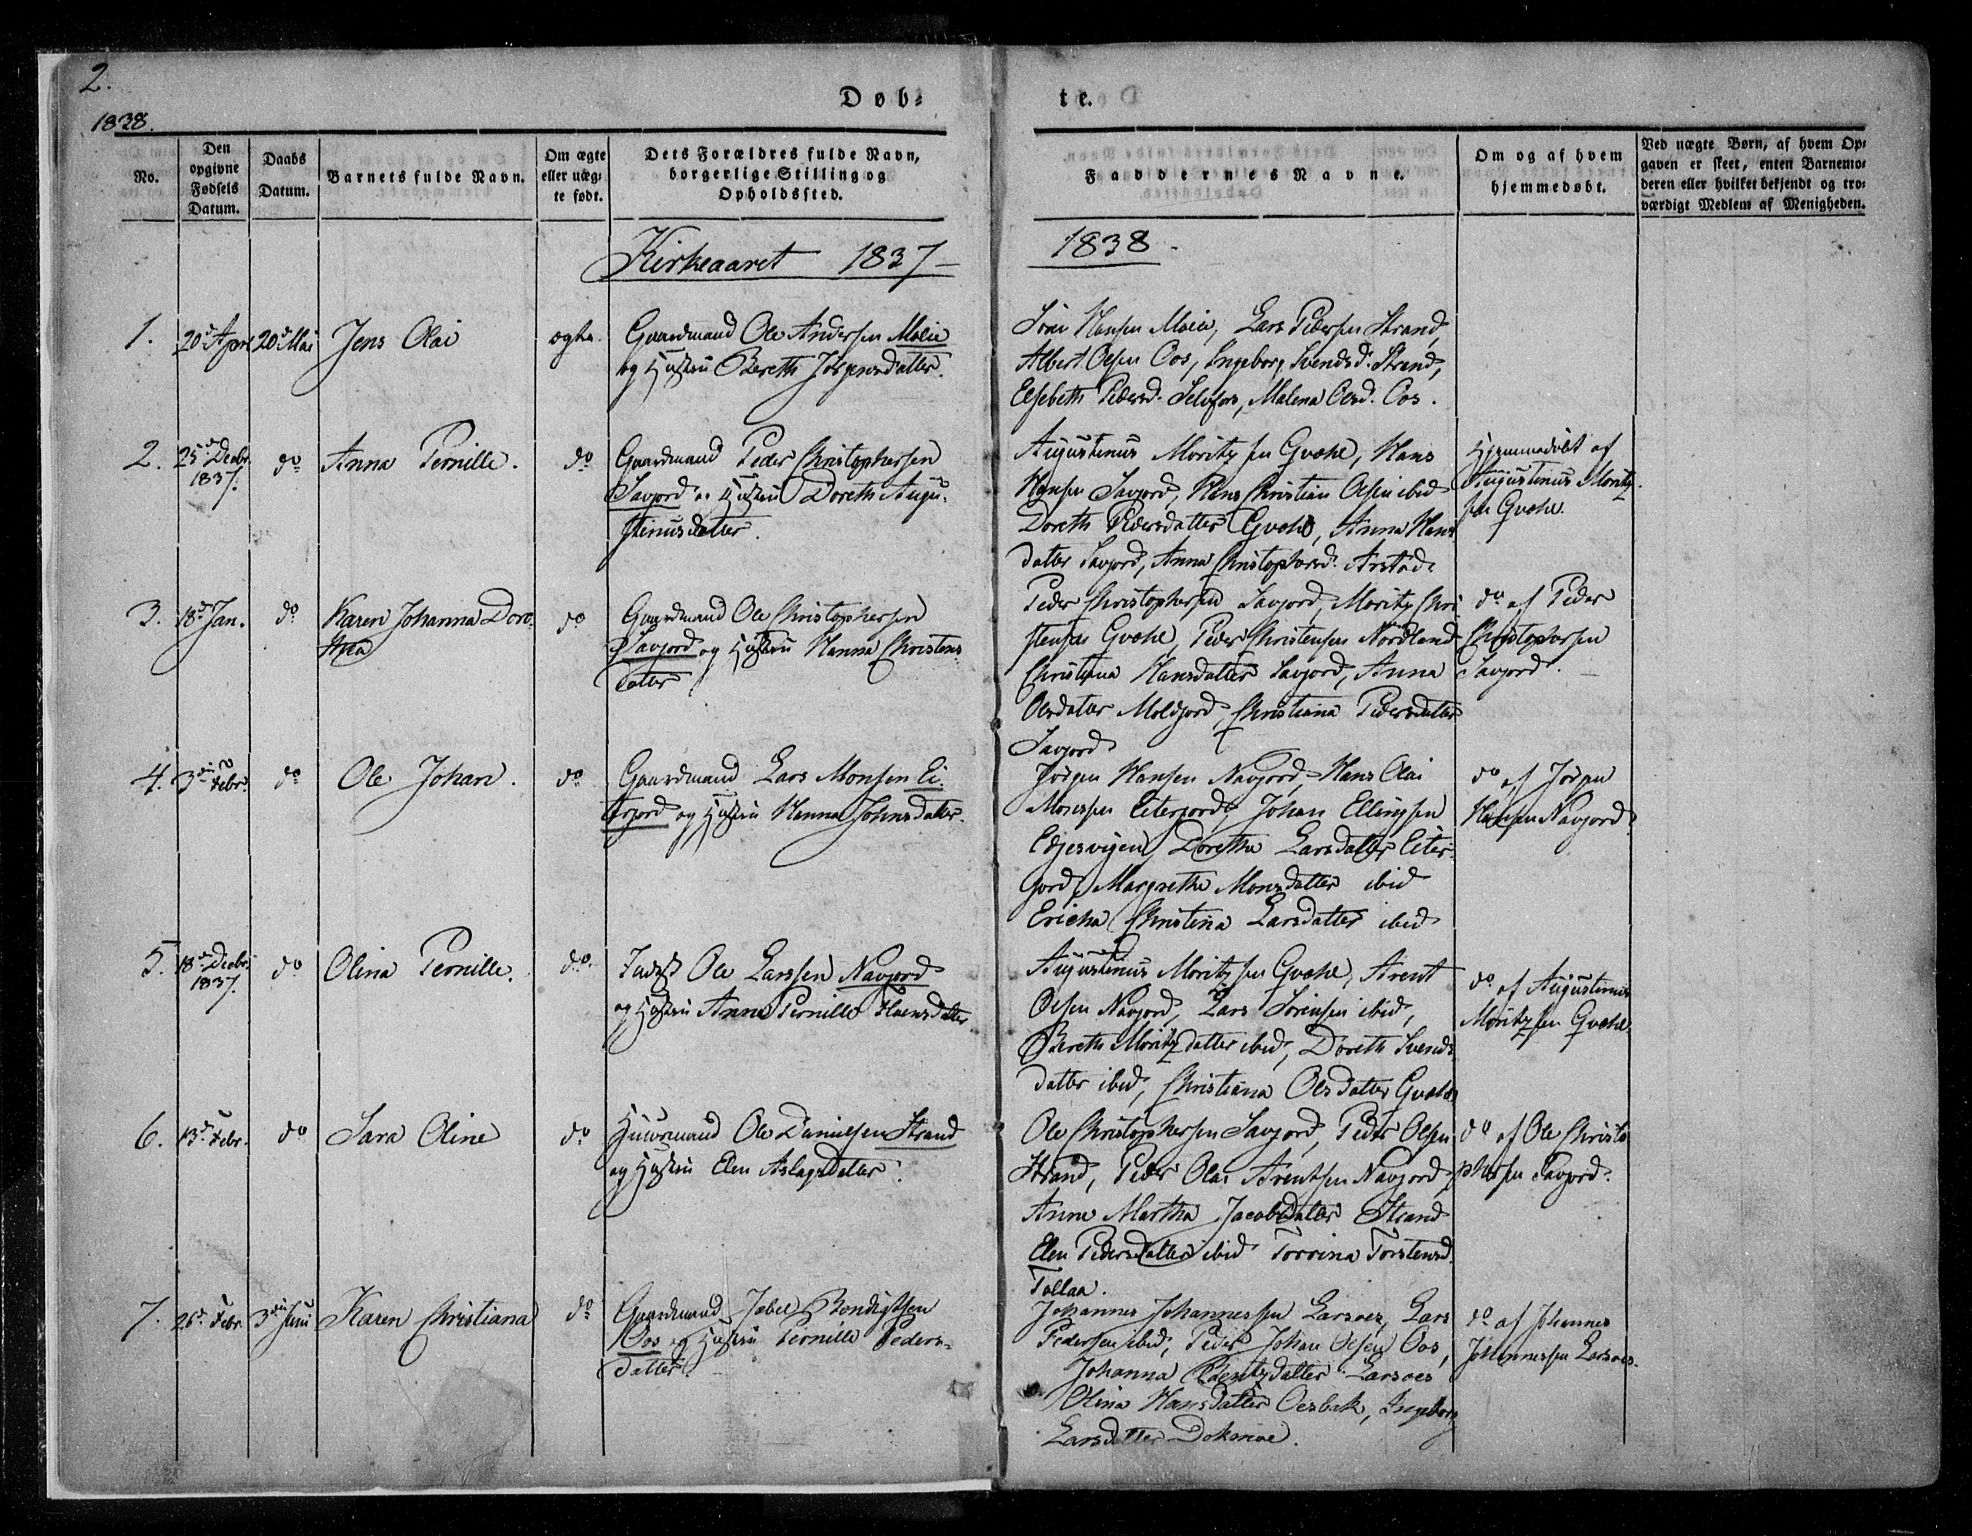 2.
1838.
Døb-
te.
No.
Den opgivne Fødsels Datum.
Daabs Datum.
Barnets fulde Navn.
Om ægte eller uæg- te født.
Dets Forældres fulde Navn, borgerlige Stilling og Opholdssted.
Faddernes Navne.
Om og af hvem hjemmedøbt.
Ved uægte Børn, af hvem Op- gaven er skeet, enten Barnemo- deren eller hvilket bekjendt og tro- værdigt Medlem af Menigheden.
Kirkeaaret 1837 – 1838
1.
20d April
20d Mai
Jens Olai
ægte.
Gaardmand Ole Andersen Moeie
og Hustru Bereth Jørgensdatter.
Hansen Moeie, Lars Pedersen Strand,
Albert Olsen Oos, Ingeborg Svendsd. Strand,
Elsebeth Pedersd. Selsfors, Malena Olsd. Oos.
2.
25d Decbr. 1837.
do
Anna Pernille.
do
Gaardmand Peder Christophersen
Savjord og Hustru Doreth Augu-
stinusdatter.
Augustinus Moritzsen Gvæhl, Hans
Hansen Savjord, Hans Christian Olsen ibid
Doreth Pedersdatter Gvæhl, Anna Hans
datter Savjord, Anna Christophersd. Arstad.
Hjemmedøbt af
Augustinus Moritz-
sen Gvæhl.
3.
18d Jan.
do
Karen Johanna Doro-
thea
do
Gaardmand Ole Christophersen
Savjord og Hustru Hanna Christens
datter
Peder Christophersen Savjord, Moritz Chri
stensen Gvæhl, Peder Christensen Nordland
Christiana Hansdatter Savjord, Anna
Olsdatter Moldjord, Christiana Pedersdatter
Savjord
do af Peder
Christophersen
Savjord.
4.
3die Febr.
do
Ole Johan.
do
Gaardmand Lars Monsen Ei-
terjord og Hustru Hanna Johnsdatter.
Jørgen Hansen Navjord, Hans Olai
Monsen Eiterjord, Johan Ellingsen
Edjesvigen, Doretha Larsdatter Eiter-
jord, Margrethe Monsdatter ibid
Ericha Christina Larsdatter ibid
do af Jørgen
Hansen Navjord.
5.
18d Decbr. 1837.
do
Olina Pernille.
do.
Inderst Ole Larssen Navjord
og Hustru Anna Pernille Hansdatter
Augustinus Moritzsen Gvæhl, Arent
Olsen Navjord, Lars Sörensen ibid,
Bereth Moritzdatter ibid, Doreth Svends
datter ibid, Christiana Olsdatter Gvæhl
do af Augustinus
Moritzsen Gvæhl.
6.
13d Febr.
do
Sara Oline
do
Huusmand Ole Danielsen Strand
og Hustru Elen Aslagsdatter.
Ole Christophersen Savjord, Peder Olsen
Strand, Peder Olai Arentsen Navjord,
Anne Martha Jacobsdatter Strand
Elen Pedersdatter ibid Torrina Torstensd.
Tollaa.
do af Ole Christo
phersen Savjord.
7.
26d Febr.
3die Juni
Karen Christiana
do
Gaardmand Jabel Bendigtsen
Oos og Hustru Pernille Peders-
datter
Johannes Johannessen Larsoes, Lars
Pedersen ibid, Peder Johan Olsen Oos,
Johanna datter Larsoes
Olina Hansdatter Oesbak, Ingeborg
Larsdatter Dokmoe.
do af Johannes
Johannessen Larsoes.